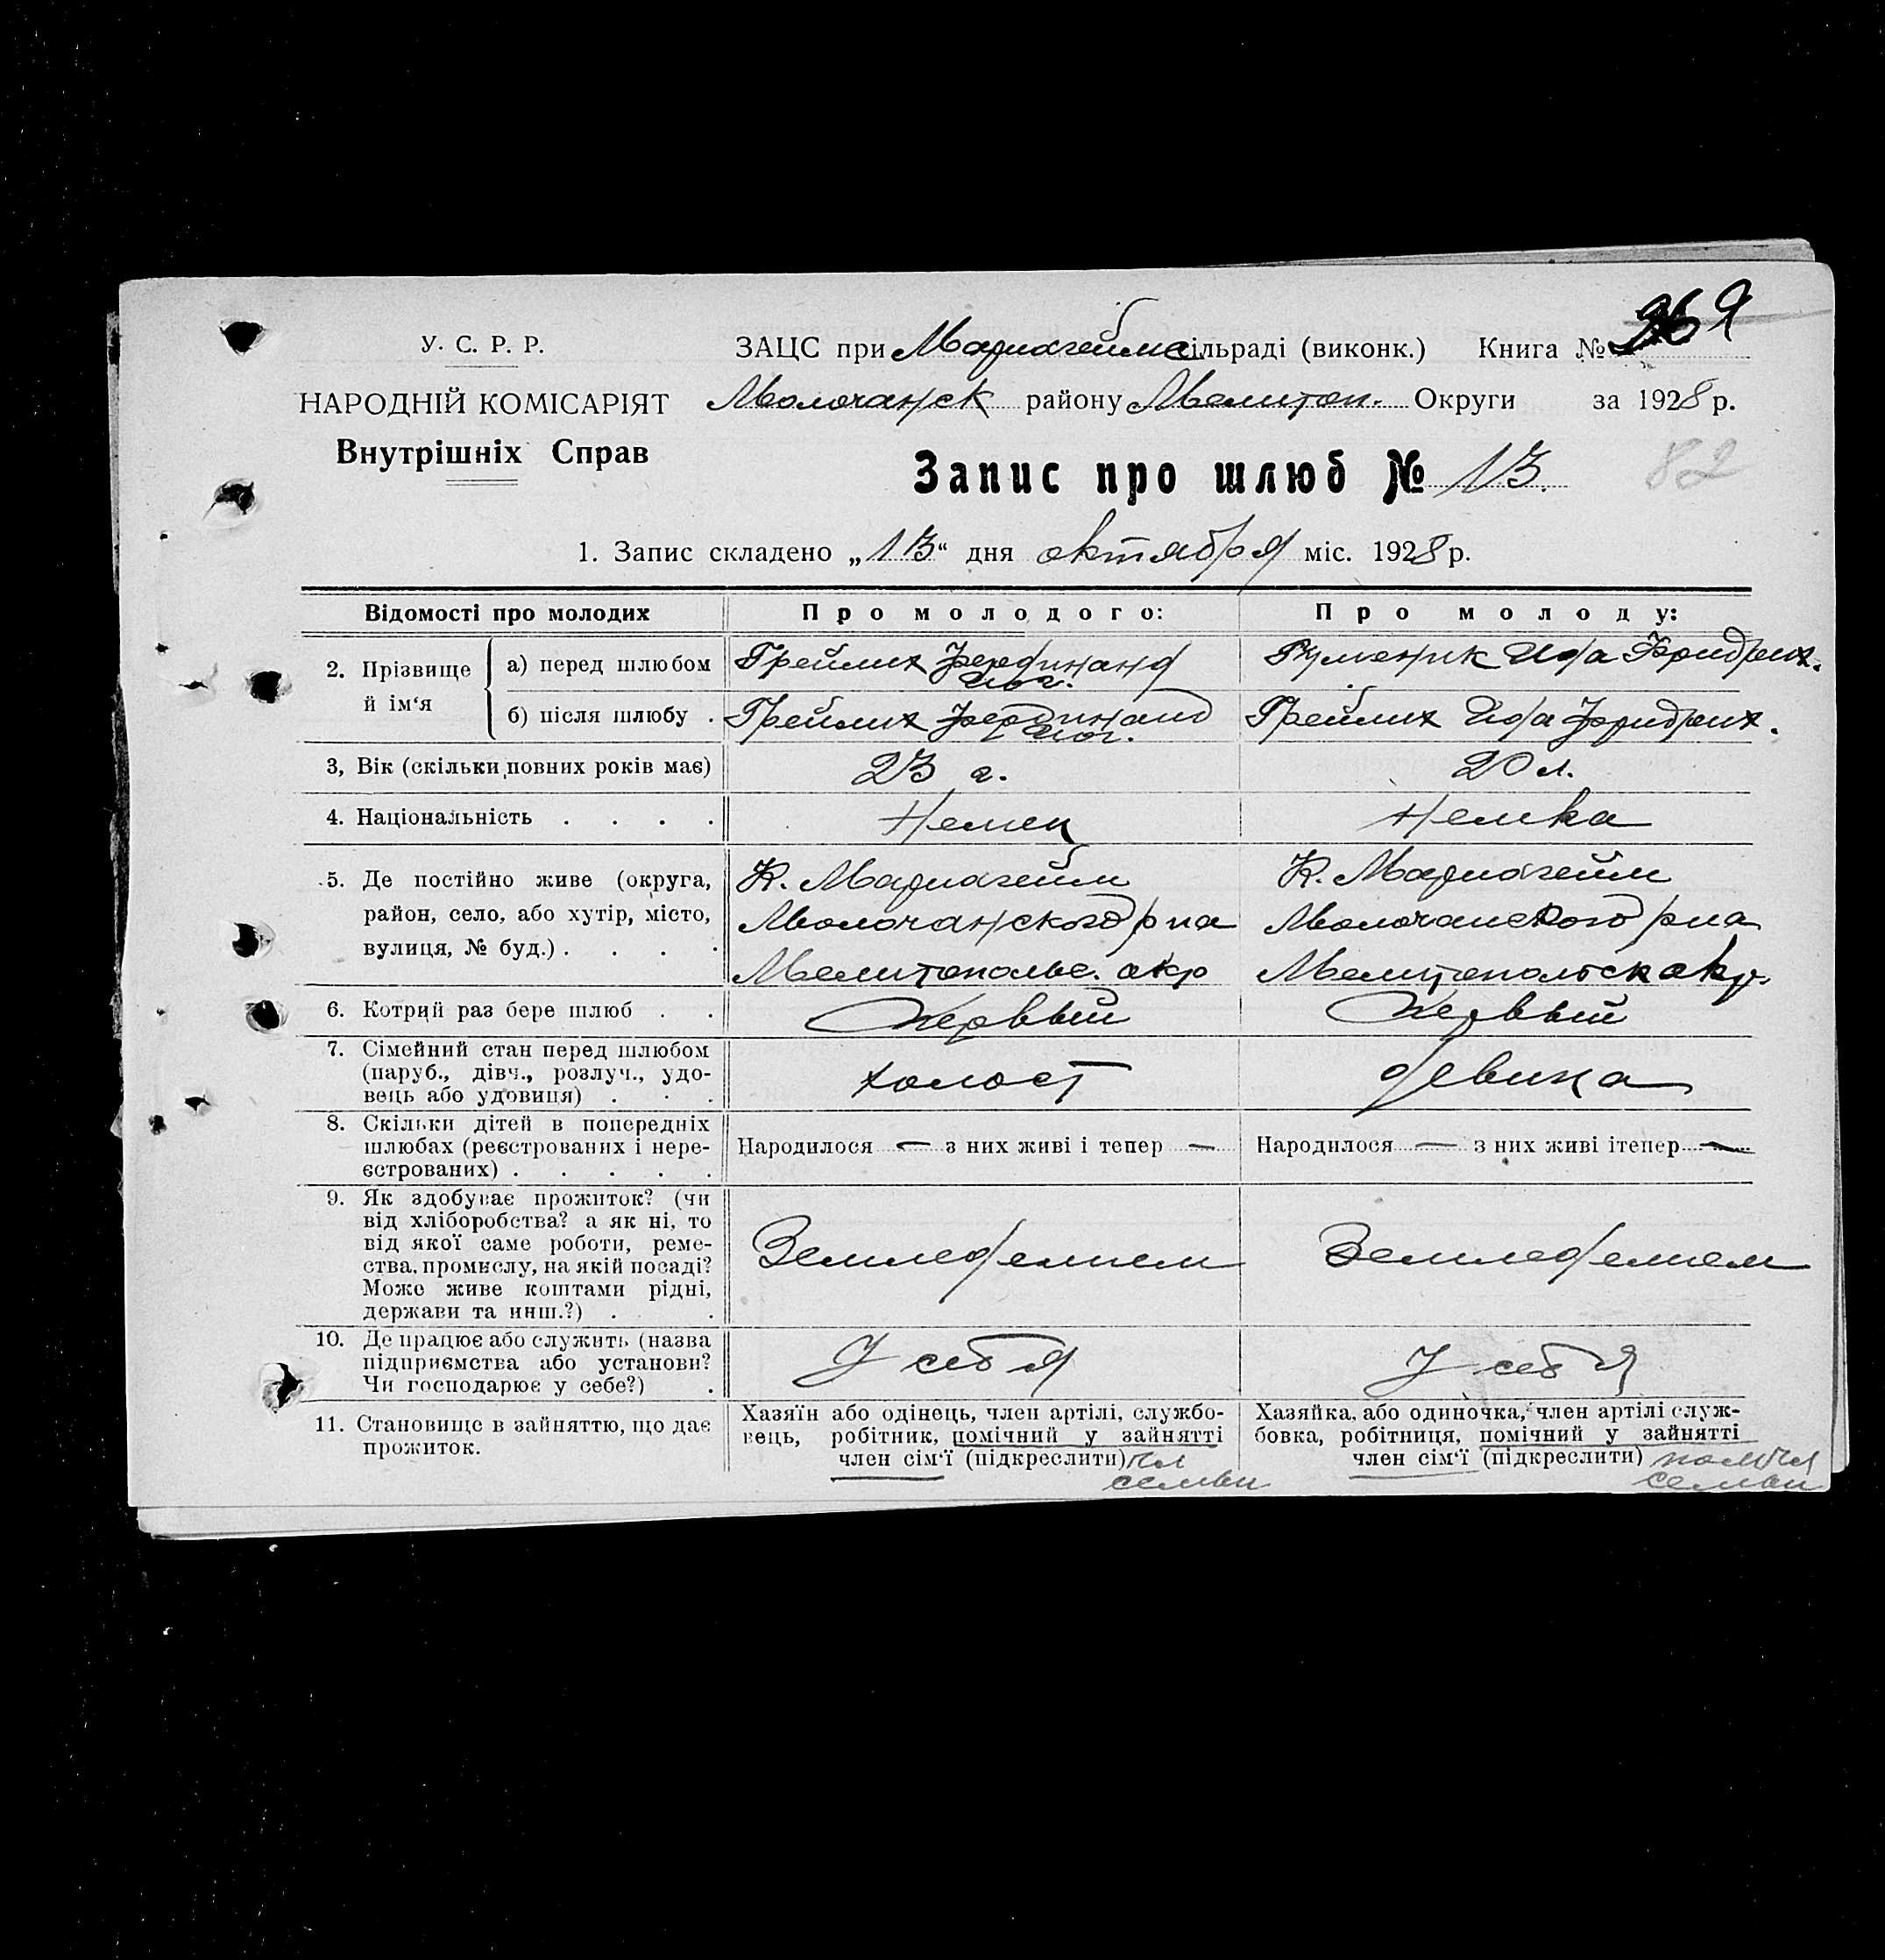 У. С. Р. Р.
НАРОДНІЙ КОМІСАРІЯТ
Внутрішніх Справ
ЗАЦС при Мариагейме сільраді (виконк.) Книга №
Молочанск району Мелитоп. Округи за 1928 р.
Запис про шлюб № 13.
82
1. Запис складено „13“ дня октября міс. 1928 р.
Відомості про молодих
Про молодого:
Про молоду:
2. Прізвище й ім‘я
а) перед шлюбом
Грейлих Фердинанд Иог.
Ида Фридрих.
б) після шлюбу .
Грейлих Фердинанд Иог.
Грейлих Ида Фридрих.
3, Вік (скільки повних років має)
23 г.
20 л.
4. Національність . . . .
Немец
Немка
5. Де постійно живе (округа,
район, село, або хутір, місто,
вулиця, № буд.) . . . .
К. Мариагейм
Молочанского р на
Мелитопольс. окр
К. Мариагейм
Молочанского р на
Мелитопольск окр.
6. Котрий раз бере шлюб . .
Первый
Первый
7. Сімейний стан перед шлюбом
(паруб., дівч., розлуч., удо-
вець або удовиця) . . .
холост
девица
8. Скільки дітей в попередніх
шлюбах (реєстрованих і нере-
єстрованих) . . . . .
Народилося — з них живі і тепер —
Народилося — з них живі ітепер —
9. Як здобуває прожиток? (чи
від хліборобства? а як ні, то
від якої саме роботи, реме-
ства, промислу, на якій посаді?
Може живе коштами рідні,
держави та инш.?) . .
Земледелием
Земледелием
10. Де працює або служить (назва
підприємства або установи?
Чи господарює у себе?) .
У себя
У себя
11. Становище в зайняттю, що дає
прожиток.
Хазяїн або одінець, член артілі, службо-
вець, робітник, помічний у зайнятті
член сім‘ї (підкреслити) чл
семьи
Хазяйка, або одиночка, член артілі служ-
бовка, робітниця, помічний у зайнятті
член сім‘ї (підкреслити)
семьи